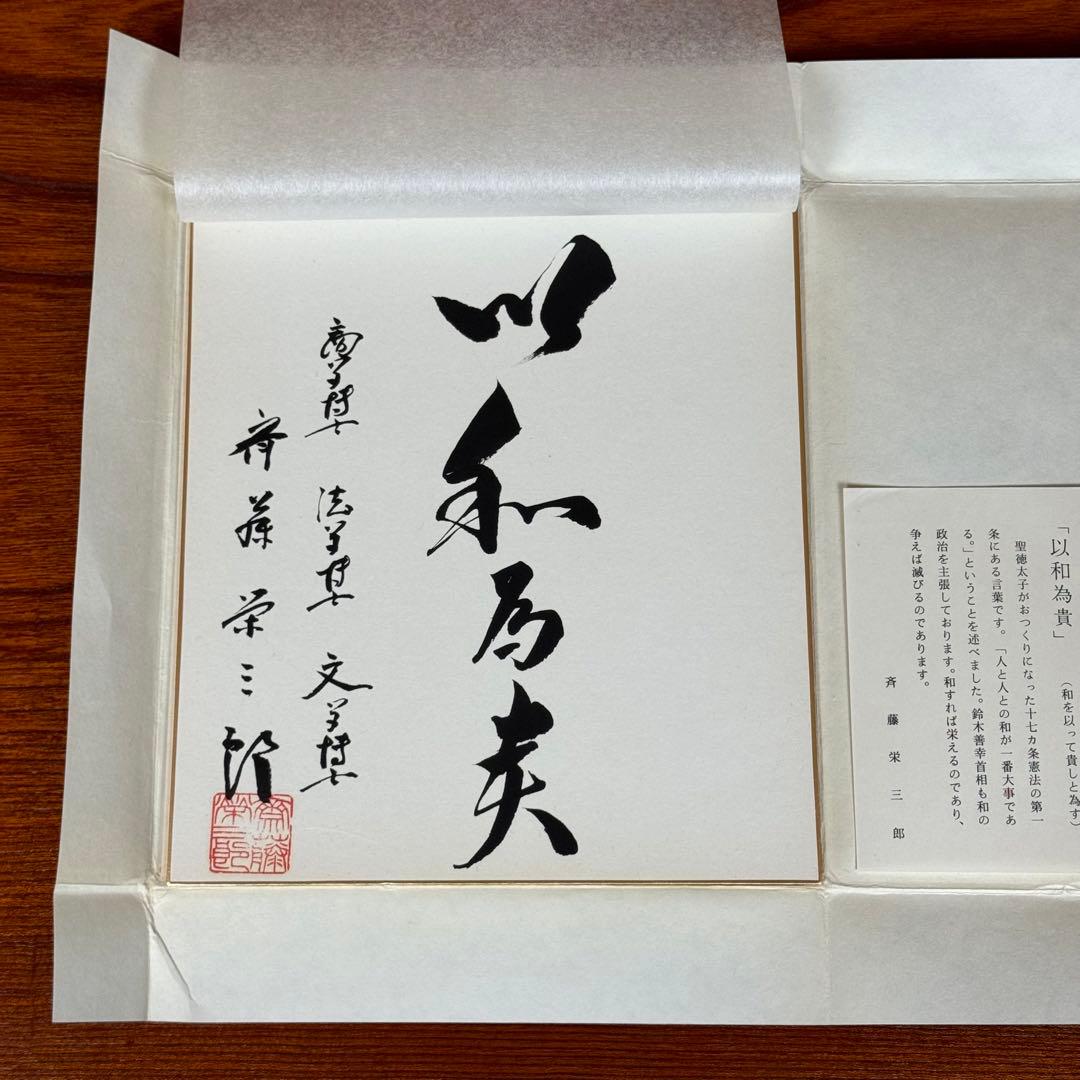 以和為貴
商学博士 法学博士 文学博士
斉藤栄三郎
斎藤栄三郎
「以和為貴」
（和を以って貴しと為す）
聖徳太子がおつくりになった十七ヵ条憲法の第一
条にある言葉です。「人と人との和が一番大事であ
る。」ということを述べました。鈴木善幸首相も和の
政治を主張しております。和すれば栄えるのであり、
争えば滅びるのであります。
斉藤栄三郎